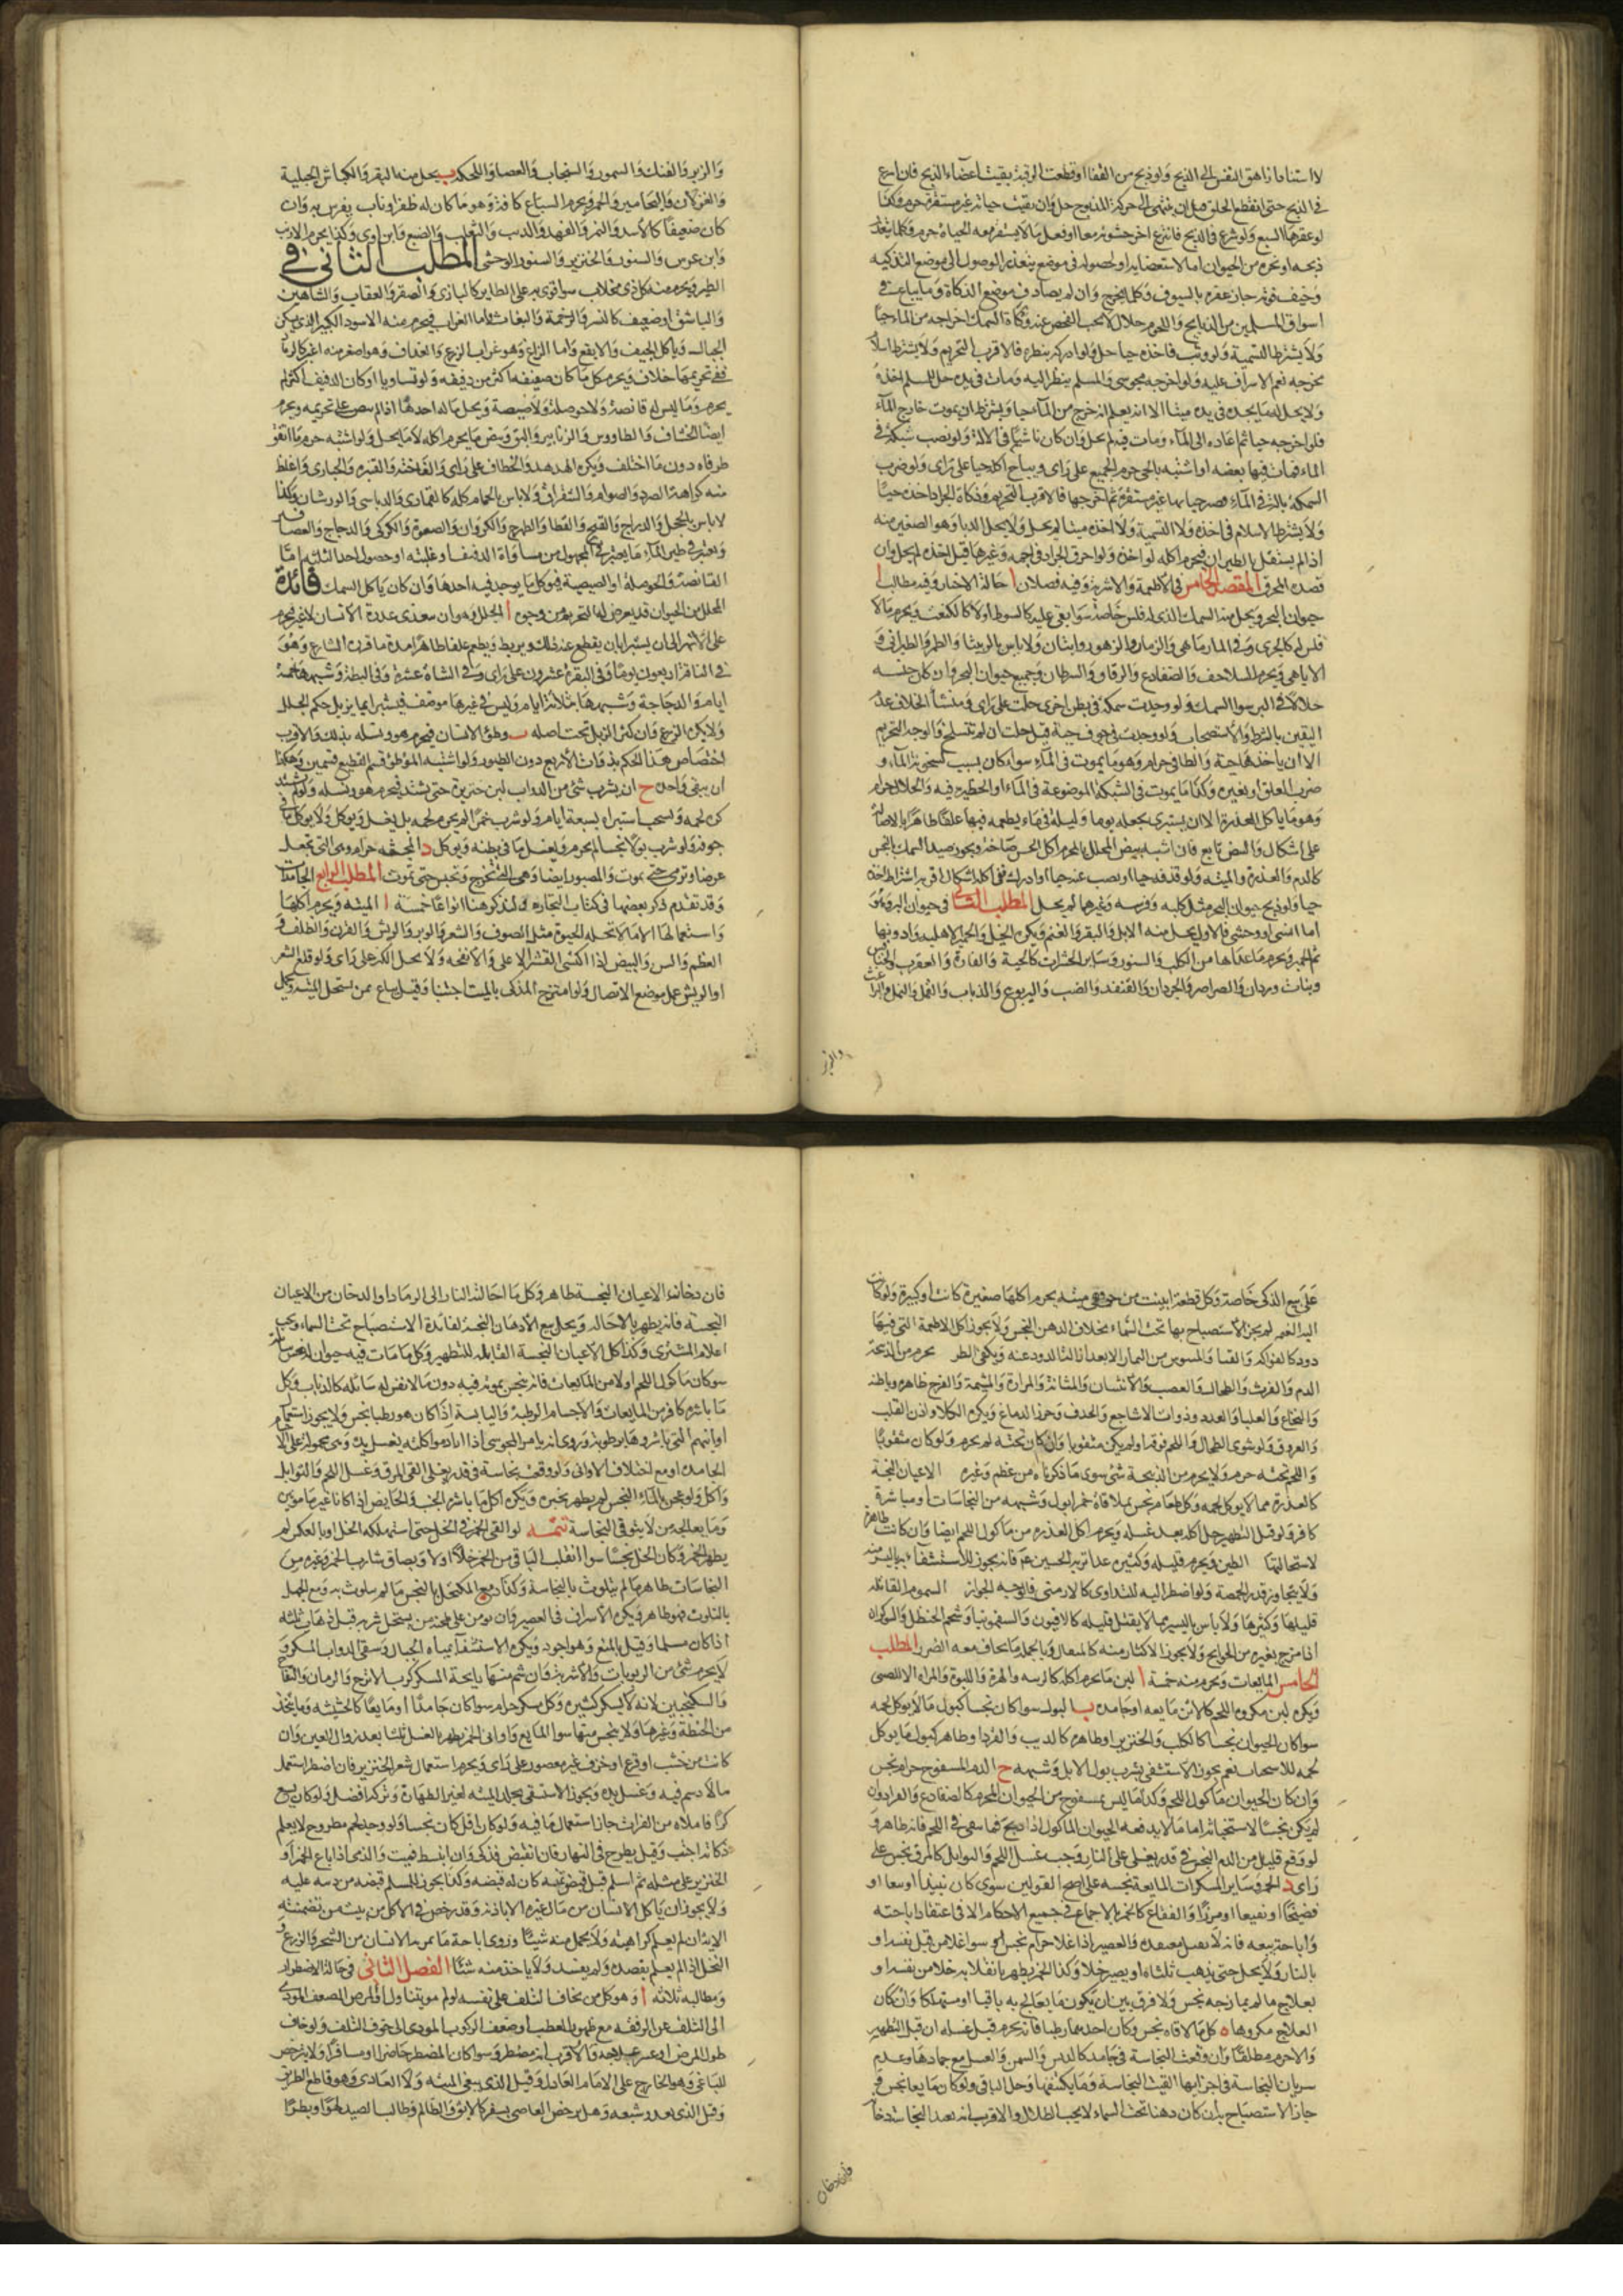 لا استناد ازهاق النفس الى الذبح ولو ذبح من القفا او قطعت الرقبة وبقيت اعضاء الذبح فان اسرع
في الذبح حتى انقطع الحلق قبل ان ينتهى الى حركة المذبوح حل وان بقيت حياته غير مستقرة حرم وكذا
لو عقرها السبع ولو شرع في الذبح فانتزع اخر حشوته معا او فعل ما لا يستقر معه الحياة حرم وكلما يتعذر
ذبحه او نحره من الحيوان اما لاستعصائه او لحصوله في موضع يتعذر الوصول الى موضع التذكيه
وخيف فوته جاز عقره بالسيوف وكلما يجرح وان لم يصادف موضع الذكاة وما يباع في
اسواق المسلمين من الذبايح واللحوم حلال لا يجب الفحص عنه وذكاة السمك اخراجه من الماء حيا
ولا يشترط التسمية ولو وثب فاخذه حيا حل ولو ادركه بنظره فالاقرب التحريم ولا يشترط اسلام
مخرجه نعم الاشراف عليه ولو اخرجه مجوسى والمسلم ينظر اليه ومات في يده حل للمسلم اخذه
ولا يحل له ما يجده في يده ميتا الا ان يعلم انه خرج من الماء حيا ويشترط ان يموت خارج الماء
فلو اخرجه حيا ثم اعاده الى الماء ومات فيه لم يحل وان كان ناشبا في الالة ولو نصب شبكة في
الماء فمات فيها بعضه او اشتبه بالحى حرم الجميع على راى ويباح اكله حيا على راى ولو ضرب
السمكة بالة في الماء فصير حياتها غير مستقرة ثم اخرجها فالاقرب التحريم وذكاة الجراد اخذه حيا
ولا يشترط الاسلام في اخذه ولا التسمية ولا اخذه ميتا لم يحل ولا يحل الدبا وهو الصغير منه
اذا لم يستقل بالطيران فيحرم اكله لو اخذ ولو احرق الجراد في اجمه وغيرها قبل اخذه لم يحل وان
قصده المحرق المقصد الخامس في الاطعمة والاشربة وفيه فصلان ا حالة الاختيار وفيه مطالب ا
حيوان البحر ويحل منه السمك الذى له فلس خاصة سوا بقى عليه كالسوط او لا كالكنعت ويحرم ما لا
فلس له كالجرى وفي المارماهى والزمار والزهو روايتان ولا باس بالربيثا والطمر والطبرانى و
الاباهى ويحرم السلاحف والضفادع والرقاق والسرطان وجميع حيوان البحر وان كان جنسه
حلالا في البر سوا السمك ولو وجدت سمكة في بطن اخرى حلت على راى ومنشأ الخلاف عدم
اليقين بالشرط والاستصحاب ولو وجدت في جوف حية قيل حلت ان لم تتسلخ والوجه التحريم
الا ان ياخذها حية والطافى حرام وهو ما يموت في الماء سوا كان بسبب كسخونة الماء و
ضرب العلق او بغيره وكذا ما يموت في الشبكة الموضوعة في الماء او الحظيره فيه والجلال حرام
وهو ما ياكل العذرة الا ان يستبرى بجعله يوما وليلة في ماء يطعمه فيها علفا طاهرا بالاصالة
على اشكال والبيض تابع فان اشتبه ببيض المحلل بالمحرم اكل الخشن خاصة ويجوز صيد السمك بالنجس
كالدم والعذرة والميته ولو قذفه حيا او نضب عنه حيا او ادركه ففى اكله اشكال اقربه اشتراط اخذه
حيا ولو ذبح حيوان البحر مثل كلبه وفرسه وغيرهما لم يحل المطلب الثانى في حيوان البر وهو
اما انسى او وحشى فالاول يحل منه الابل والبقر والغنم ويكره الخيل والحمير الاهليه وادونها
ثم الحمير ويحرم ما عداها من الكلب والسنور وساير الحشرات كالحية والفارة والعقرب والخنافس
وبنات وردان والصراصر والجرذان والقنفذ والضب واليربوع والذباب والقمل والنمل والبراغيث
والزبر
والوبر والفنك والسمور والسنجاب والعصا واللحكه ب يحل منه البقر والكباش الجبلية
والغزلان واليحامير والحمر ويحرم السباع كافة وهو ما كان له ظفر او ناب يفرس به وان
كان ضعيفا كالاسد والنمر والفهد والذئب والثعلب والضبع وابن اوى وكذا يحرم الارنب
وابن عرس والسنور والخنزير والسنور الوحشى المطلب الثانى في
الطير ويحرم منه كل ذى مخلاب سوا قوى به على الطاير كالبازى والصقر والعقاب والشاهين
والباشق او ضعيف كالنسر والرخمة والبغاث واما الغراب فيحرم منه الاسود الكبير الذى يسكن
الجبال وياكل الجيف والابقع واما الزاغ وهو غراب الزرع والغداف وهو اصغر منه اغبر كالرماد
ففى تحريمها خلاف ويحرم كل ما كان صفيفه اكثر من دفيفه ولو تساويا او كان الدفيف اكثر لم
يحرم وما ليس له قانصة ولا حوصلة ولا صيصة ويحل ما له احدها اذا لم ينص على تحريمه ويحرم
ايضا الخشاف والطاووس والزنابير والبق وبيض ما يحرم اكله لا ما يحل ولو اشتبه حرم ما اتفق
طرفاه دون ما اختلف ويكره الهدهد والخطاف على راى والفاخته والقبره والحبارى واغلظ
منه كراهة الصرد والصوام والشقراق ولا باس بالحمام كله كالقمارى والدباسى والورشان وكذا
لا باس بالحجل والدراج والقبج والقطا والطيهوج والكروان والصعوة والكركى والدجاج والعصافير
ويعتبر في طير الماء ما يعتبر في المجهول من مساواة الدفيف او غلبته او حصول احد الثلثة اما
القانصة والحوصلة او الصيصية فيؤكل ما يوجد فيه احدها وان كان ياكل السمك فائدة
المحلل من الحيوان قد يعرض له التحريم من وجوه ا الجلل وهو ان يتغذى عذرة الانسان لا غير فيحرم
على الاشهر الى ان يستبرا بان يقطع عنه ذلك ويربط ويطعم علفا طاهرا مدة ما قدره الشارع وهو
في الناقة اربعون يوما وفي البقرة عشرون على راى وفي الشاة عشرة وفي البطة وشبهها خمسة
ايام والدجاجة وشبهها ثلاثة ايام وليس في غيرها موظف فيستبرا بما يزيل حكم الجلل
ولا يكره الزرع وان كثر الزبل تحت اصله ب وطئ الانسان فيحرم هو ونسله بذلك والاقرب
اختصاص هذا الحكم بذوات الاربع دون الطيور ولو اشتبه الموطؤ قسم القطيع قسمين وهكذا
ان يبقى واحد ح ان يشرب شئ من الدواب لبن خنزيرة حتى يشتد فيحرم هو ونسله ولو لم يشتد
كره لحمه ويستحب استبراه بسبعة ايام ولو شرب خمرا لم يحرم لحمه بل يغسل ويوكل ولا يوكل ما في
جوفه ولو شرب بولا نجسا لم يحرم ويغسل ما في بطنه ويوكل د المجثمه حرام وهى التى تجعل
غرضا وترمى حتى تموت والمصبور ايضا وهى التى تجرح وتحبس حتى تموت المطلب الرابع الجامدات
وقد تقدم ذكر بعضها في كتاب التجارة ولنذكر هنا انواعا خمسة ا الميته ويحرم اكلها
واستعمالها الا ما لا تحله الحيوة مثل الصوف والشعر والوبر والريش والقرن والظلف و
العظم والسن والبيض اذا اكتسى القشر الاعلى والانفحه ولا يحل اللبن على راى ولو قلع الشعر
او الريش غسل موضع الاتصال ولو امتزج المذكى بالميت اجتنبا وقيل يباع ممن يستحل الميتة ويحمل
على بيع الذكى خاصة وكل قطعة ابينت من حى فهى ميتة يحرم اكلها صغيرة كانت او كبيرة ولو كانت
الية الغنم لم يجز الاستصباح بها تحت السماء بخلاف الدهن النجس ولا يجوز اكل الاطعمة التى فيها
دود كالفواكه والقثا والمسوس من الثمار الا بعد ازالة الدود عنه ويكفى الظن يحرم من الذبيحة
الدم والفرث والطحال والعصب والانثيان والمثانة والمرارة والمشيمة والفرج ظاهره وباطنه
والنخاع والعلبا والغدد وذوات الاشاجع والحدق وخرزة الدماغ ويكره الكلا واذن القلب
والعروق ولو شوى الطحال واللحم فوقه او لم يكن مثقوبا وان كان تحته لم يحرم ولو كان مثقوبا
واللحم تحته حرم ولا يحرم من الذبيحة شئ سوى ما ذكرناه من عظم وغيره الاعيان النجسة
كالعذرة مما لا يوكل لحمه وكل طعام نجس بملاقاة خمر او بول وشبهه من النجاسات او مباشرة
كافر ولو قبل التطهير حل اكله بعد غسله ويحرم اكل العذره من ماكول اللحم ايضا وان كانت طاهرة
لاستخباثها الطين ويحرم قليله وكثيره عدا تربة الحسين ع فانه يجوز للاستشفاء باليسير منه
ولا يتجاوز قدر الحمصة ولو اضطر اليه للتداوى كالارمنى فالوجه الجواز السموم القاتلة
قليلها وكثيرها ولا باس باليسير مما لا يقتل قليله كالافيون والسقمونيا وشحم الحنظل والشوكران
اذا مزج بغيره من الحوايج ولا يجوز الاكثار منه كالمثقال وبالجملة ما يخاف معه الضرر المطلب
الخامس المايعات ويحرم منه خمسة ا لبن ما يحرم اكله كالذئبه والهرة واللبوة والمراة الا للصبى
ويكره لبن مكروه اللحم كالاتن مايعه او جامده ب البول سوا كان نجسا كبول ما لا يوكل لحمه
سوا كان الحيوان نجسا كالكلب والخنزير او طاهرا كالذئب والقرد او طاهر كبول ما يوكل
لحمه للاستخباث نعم يجوز الاستشفى بشرب بول الابل وشبهه ح الدم المسفوح حرام نجس
وان كان الحيوان ماكول اللحم وكذا ما ليس بمسفوح من الحيوان المحرم كالضفادع والقراد وان
لم يكن نجسا لاستخباثه اما ما لا يدفعه الحيوان الماكول اذا ذبح مما يبقى في اللحم فانه طاهر و
لو وقع قليل من الدم النجس في قدر يغلى على النار وجب غسل اللحم والتوابل كالمرق نجس على
راى د الخمر وساير المسكرات المايعة نجسه على اصح القولين سوى كان نبيذا او بتعا او
فضيخا او نقيعا او مزرا والفقاع كالخمر بالاجماع في جميع الاحكام الا في اعتقاد اباحته
واباحة بيعه فانه لا يقتل معتقده والعصير اذا غلا حرام نجس سوا غلا من قبل نفسه او
بالنار ولا يحل حتى يذهب ثلثاه او يصير خلا وكذا الخمر يطهر بانقلابه خلا من نفسه او
بعلاج ما لم يمازجه نجس ولا فرق بين ان يكون ما يعالج به باقيا او مستهلكا وان كان
العلاج مكروها ه كل ما لاقاه نجس وكان احدهما رطبا فانه يحرم قبل غسله ان قبل التطهير
والا حرم مطلقا وان وقعت النجاسة في جامد كالدبس والسمن والعسل مع جمادها وعدم
سريان النجاسة في اجزائها القيت النجاسة وما يكتنفها وحل الباقى ولو كان مايعا نجس و
جاز الاستصباح به ان كان دهنا تحت السماء لا يجب الظلال والاقرب انه تعبد النجاسة دخانه
فان دخان
فان دخانه الاعيان النجسة طاهر وكل ما احالته النار الى الرماد او الدخان من الاعيان
النجسة فانه يطهر بالاحالة ويحل بيع الادهان النجسة لفائدة الاستصباح تحت السماء ويجب
اعلام المشترى وكذا كل الاعيان النجسة القابلة للتطهير وكل ما مات فيه حيوان له نفس سائلة
سوا كان ماكول اللحم او لا من المايعات فانه ينجس بموته فيه دون ما لا نفس له سائله كالذباب وكل
ما باشره كافر من المايعات والاجسام الرطبة واليابسة اذا كان هو رطبا نجس ولا يجوز استعمال
اوانيهم التى باشروها برطوبة وروى انه يامر المجوسى اذا اراد مواكلته بغسل يده وهى محمولة على الا
الجامده او مع اختلاف الاوانى ولو وقعت نجاسة في قدر يغلى القى المرق وغسل اللحم والتوابل
واكل ولو عجن بالماء النجس لم يطهر بخبزه ويكره اكل ما باشره الجنب والحايض اذا كانا غير مامونين
وما يعالجه من لا يتوقى النجاسة تتمه لو القى الخمر في الخل حتى استهلكه الخل او بالعكس لم
يطهر الخمر وكان الخل نجسا سوا انقلب الباقى من الخمر خلا او لا وبصاق شارب الخمر وغيره من
النجاسات طاهر ما لم يتلوث بالنجاسة وكذا دمع المكتحل بالنجس ما لم يتلوث به ومع الجهل
بالتلوث فهو طاهر ويكره الاسراف في العصير وان يومن على طبخه من يستحل شربه قبل ذهاب ثلثيه
اذا كان مسلما وقيل بالمنع وهو اجود ويكره الاستشفاء بمياه الجبال وسقى الدواب المسكر و
لا يحرم شئ من الربوبات والاشربة وان شم منها رايحة المسكر كرب الاترج والرمان والتفاح
والسكنجبين لانه لا يسكر كثيره وكل مسكر حرام سوا كان جامدا او مايعا كالحشيشه وما يتخذ
من الحنطة وغيرها ولا ينجس منها سوا المايع واوانى الخمر يطهر بالغسل ثلثا بعد زوال العين وان
كانت من خشب او قرع او خزف غير مغضور على راى ويحرم استعمال شعر الخنزير فان اضطر استعمل
ما لا دسم فيه وغسل يده ويجوز الاستقى بجلد الميته لغير الطهارة وتركه افضل ولو كان يسع
كرا فاملاه من الفرات جاز استعمال ما فيه ولو كان اقل كان نجسا ولو وجد لحم مطروح لا يعلم
ذكاته اجتنب وقيل يطرح في النار فان انقبض فذكى وان انبسط فميت والذمى اذا باع الخمر او
الخنزير على مثله ثم اسلم قبل قبض ثمنه كان له قبضه وكذا يجوز للمسلم قبضه من دينه عليه
ولا يجوز ان ياكل الانسان من مال غيره الا باذنه وقد رخص في الاكل من بيت من تضمنته
الاية ان لم يعلم كراهيته ولا يحمل منه شيئا وروى اباحة ما يمر به الانسان من الشجر والزرع و
النخل اذا لم يعلم بقصده ولم يفسد ولا ياخذ منه شئا الفصل الثانى في حالة الاضطرار
ومطالبه ثلاثه ا وهو كل من يخاف التلف على نفسه لو لم يتناول او المرض او الضعف المودى
الى التلف عن الرفقه مع ظهور العطب او ضعف الركوب المودى الى خوف التلف ولو خاف
طول المرض او عسر علاجه فالاقرب انه مضطر وسوا كان المضطر حاضرا او مسافرا ولا يترخص
للباغى وهو الخارج على الامام العادل وقيل الذى يبغى الميته ولا العادى وهو قاطع الطريق
وقيل الذى يعدو شبعه وهل يرخص العاصى بسفره كالابق والظالم وطالب الصيد لهوا وبطرا